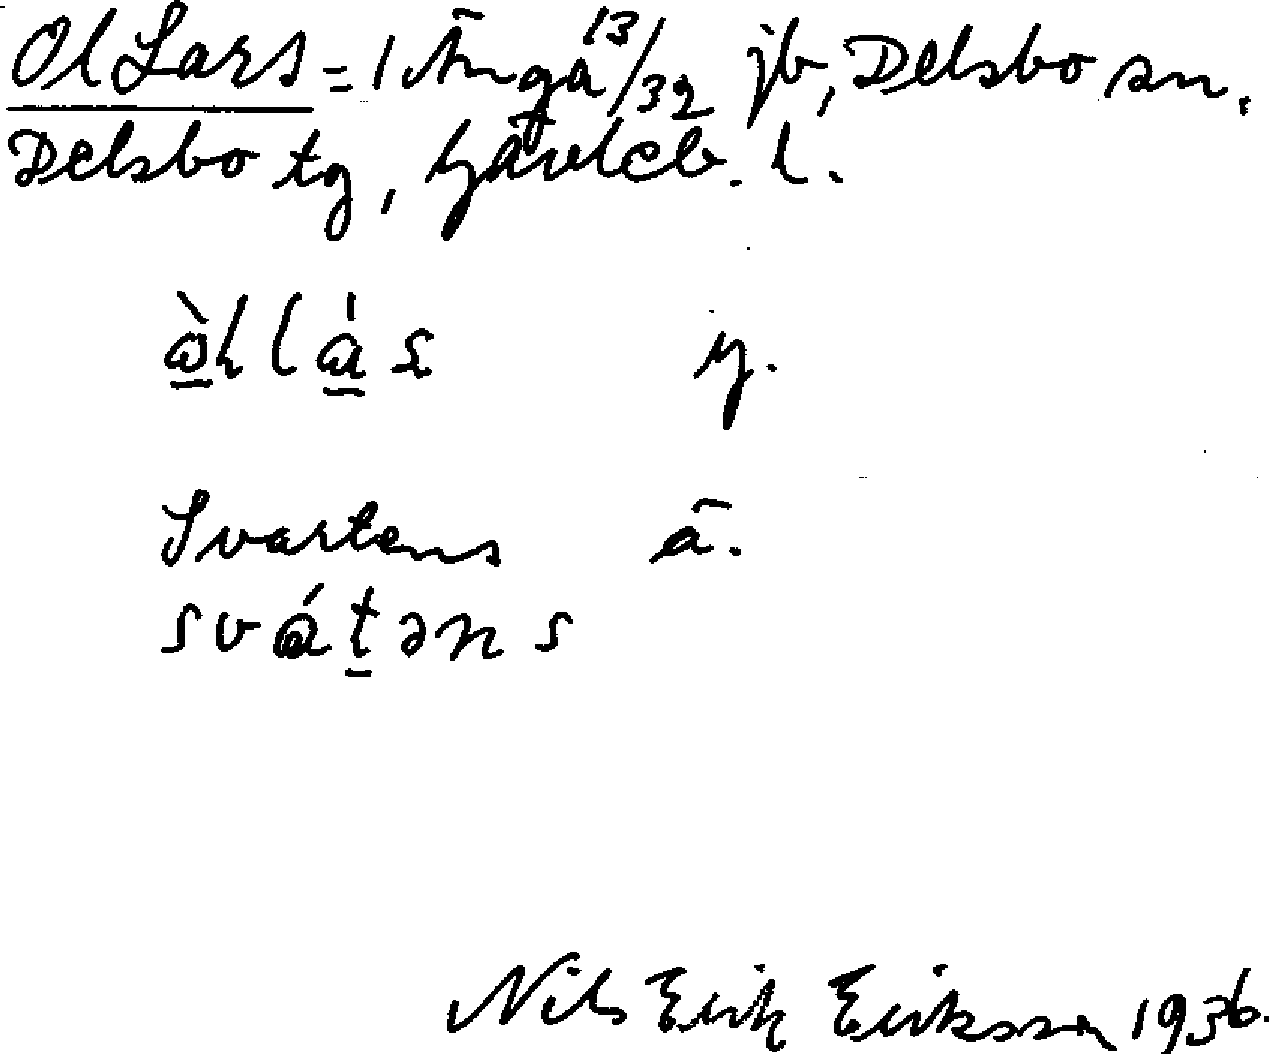 Ol Lars = 1 Ängå 13/32 jb, Delsbo sn.
Delsbo tg, Gävleb. l.
y.
Svartens ä.
Nils Erik Eriksson 1936.